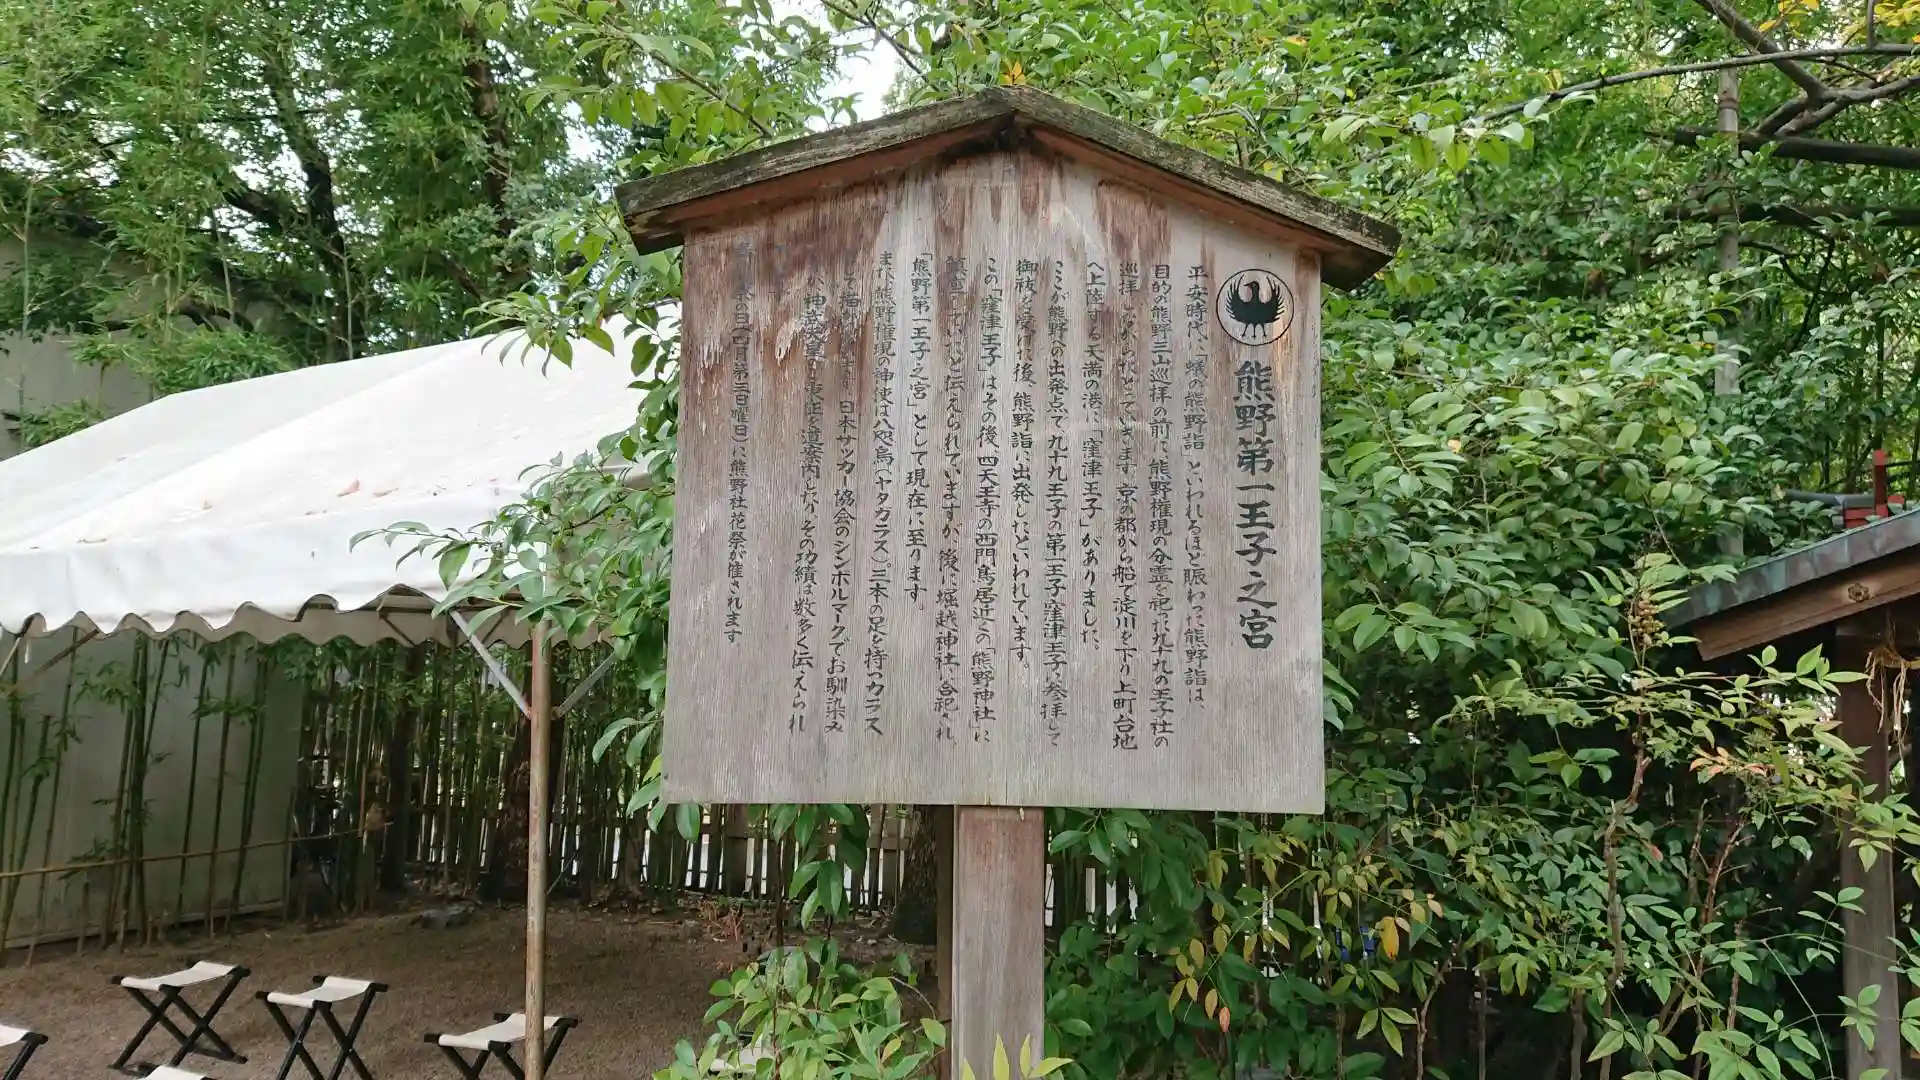 熊野第一王子之宮
平安時代、「蟻の熊野詣」といわれるほど賑わった熊野詣は、
目的の熊野三山巡拝の前に、熊野権現の分霊を祀った九十九の王子社の
巡拝からたどっていきます。京の都から船で淀川を下り上町台地
へ上陸する天満の港に「窪津王子」がありました。
ここが熊野への出発点で九十九王子の第一王子窪津王子に参拝して
御祓を受けた後、熊野詣に出発したといわれています。
この「窪津王子」はその後、四天王寺の西門鳥居近くの「熊野神社」に
鎮座していたと伝えられていますが、後に堀越神社に合祀され、
「熊野第一王子之宮」として現在に至ります。
また、熊野権現の神使は八咫烏(ヤタガラス)。三本の足を持つカラス
として描かれ、日本サッカー協会のシンボルマークでお馴染み
が、神武天皇の東征を道案内したりその功績は数多く伝えられ
の日(四月第三日曜日)に熊野社花祭が催されます